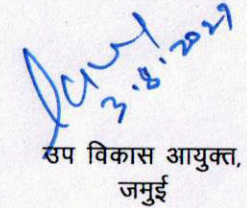 3.8.2021
उप विकास आयुक्त,
जमुई